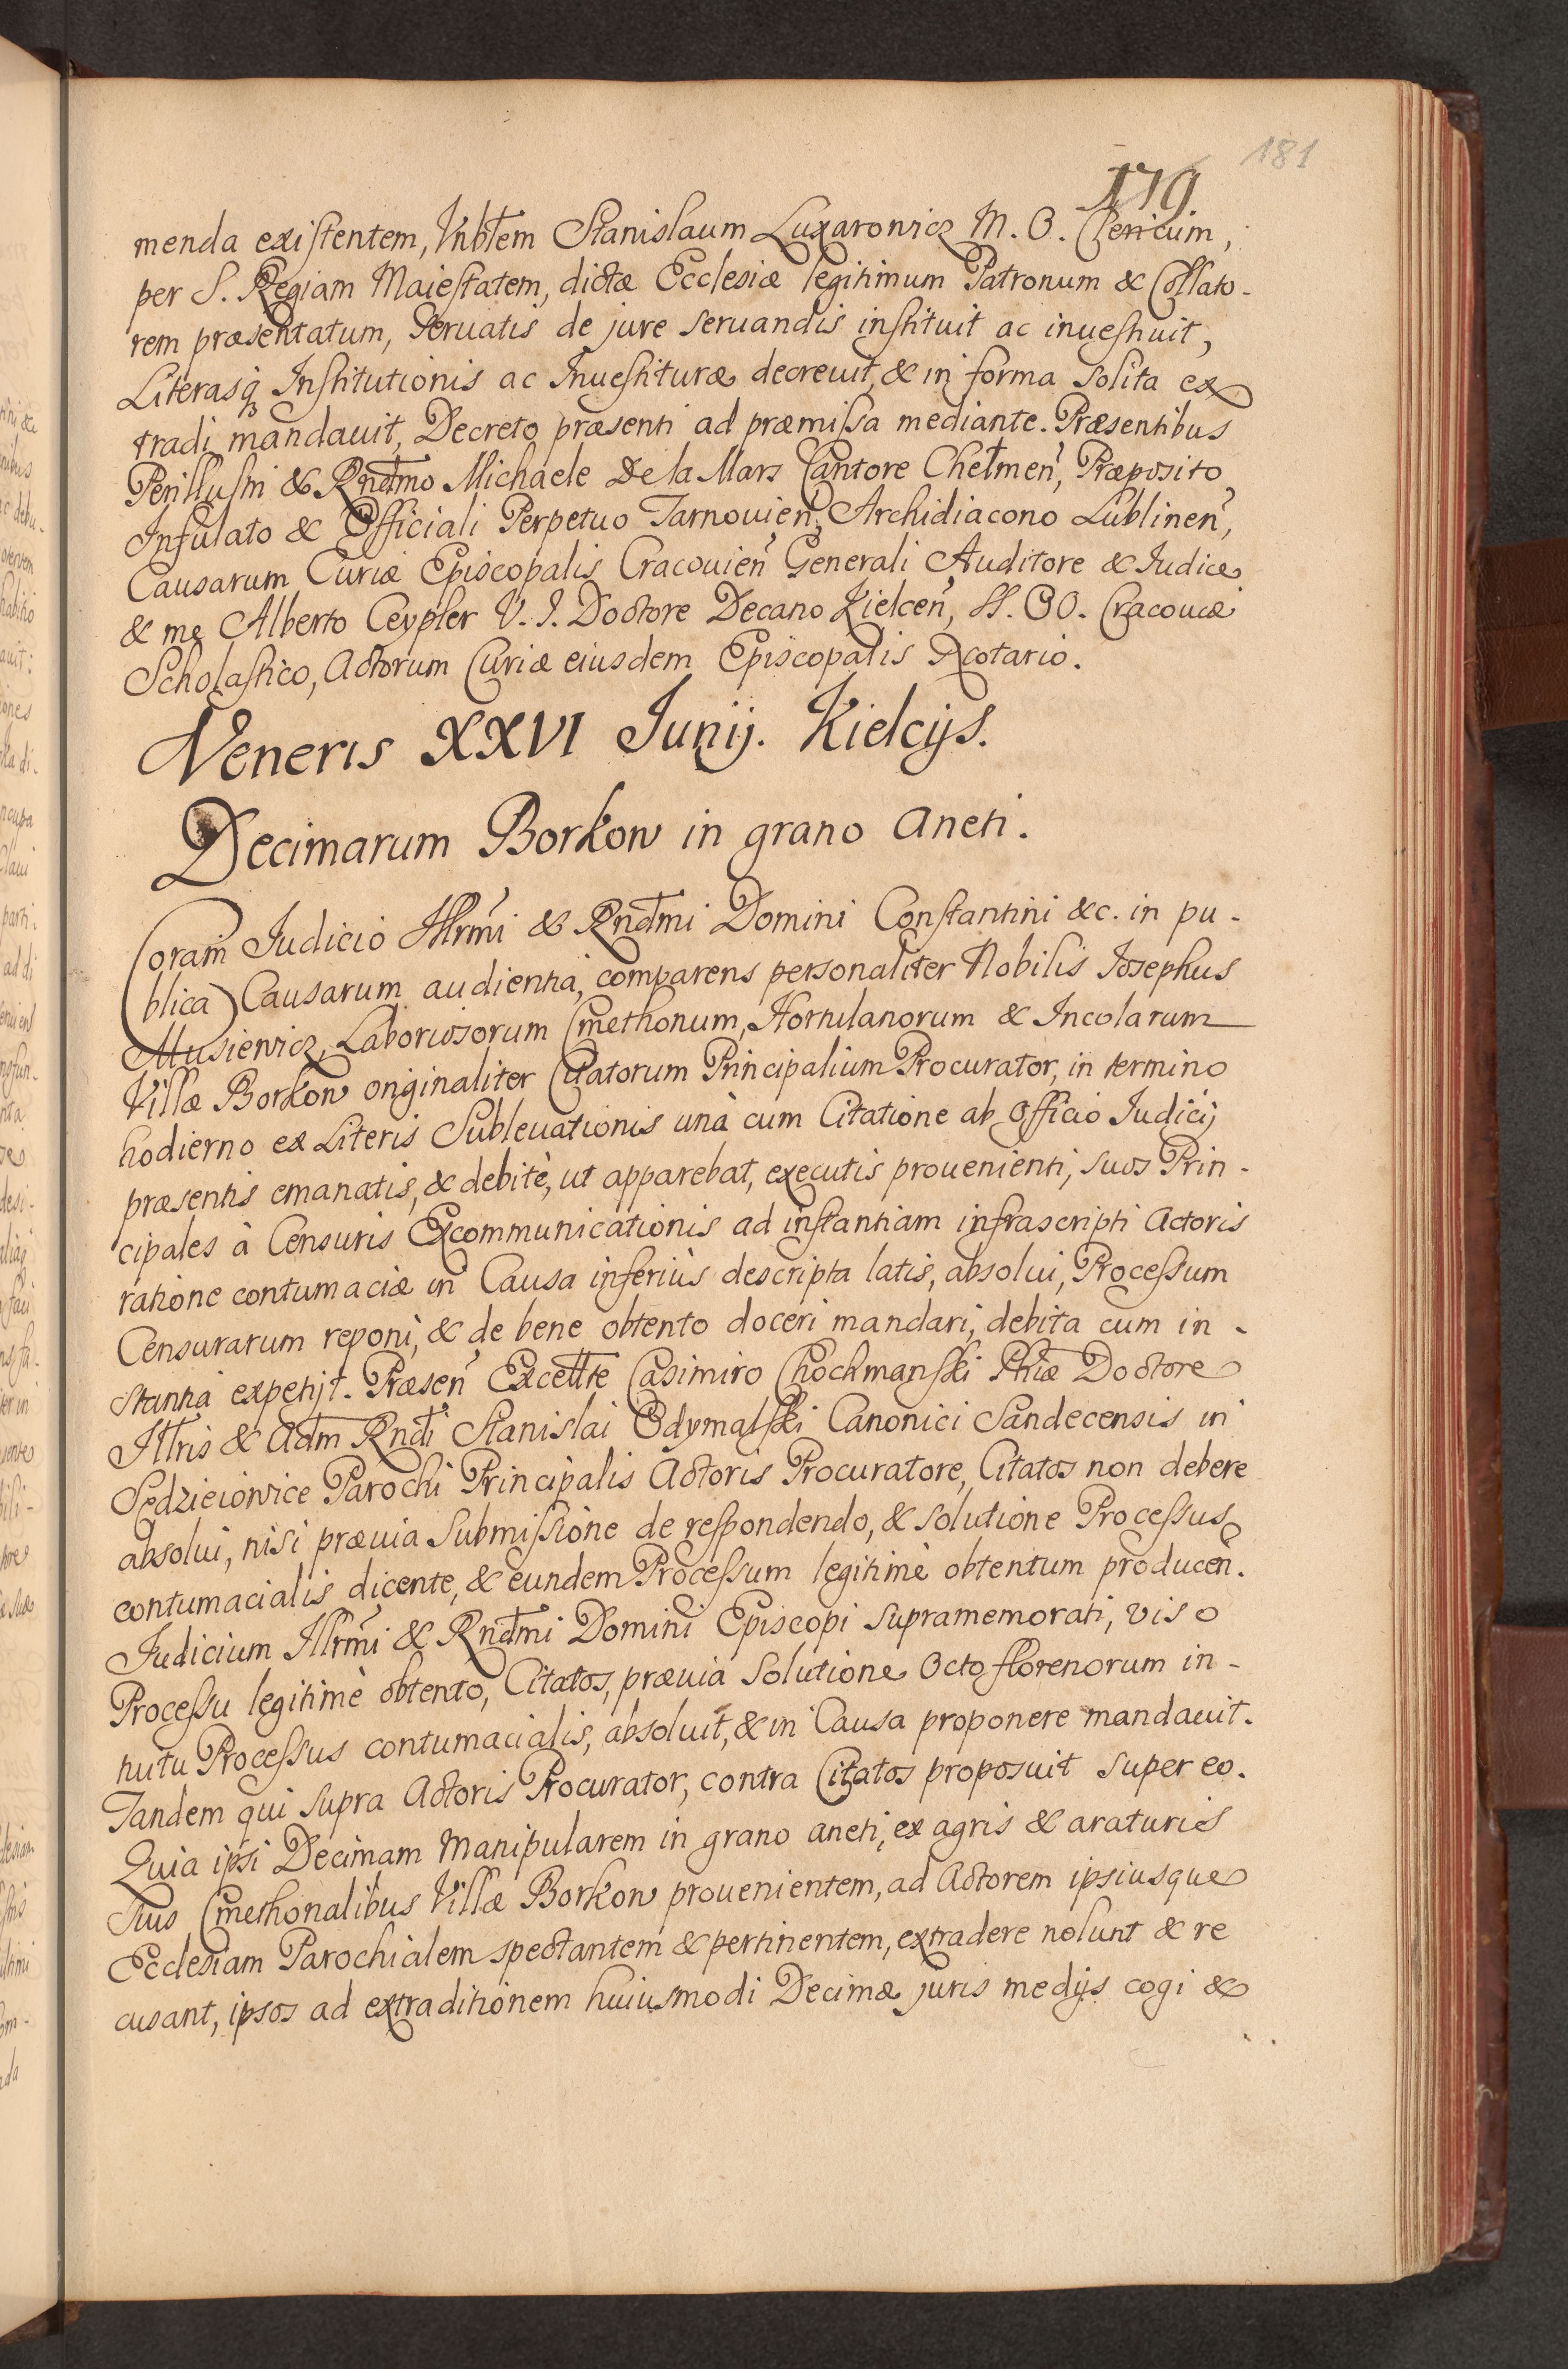 181
179
menda existentem, Vnbłem Stanislaum Luxarowicz M. O. Clericum,
per S. Regiam Maiestatem, dictæ Ecclesiæ legitimum Patronum & Collato-
rem præsentatum, Servatis de jure servandis instituit ac inuestiuit,
Literasq; Institutionis ac Inuestituræ decreuit, & in forma solita ex
tradi mandauit, Decreto præsenti ad præmissa mediante. Præsentibus
Perillustri & Rndmo Michaele De la Mars Cantore Chełmen, Præposito
Infulato & Officiali Perpetuo Tarnouien, Archidiacono Lublinen,
Causarum Curiæ Episcopalis Cracouien Generali Auditore & Iudice
& me Alberto Ceypler V. I. Doctore Decano Kielcen, SS. OO. Cracouiæ
Scholastico, Actorum Curiæ eiusdem Episcopalis Notario.
Veneris XXVI Junij. Kielcijs.
Decimarum Borkow in grano Aneti.
Coram Iudicio Illrmi & Rndmi Domini Constantini &c. in pu-
blica Causarum audientia, comparens personaliter Nobilis Iosephus
Musiewicz, Laboriosorum Cmethonum, Hortulanorum & Incolarum
Villæ Borkow originaliter Citatorum Principalium Procurator, in termino
hodierno ex Literis Subleuationis unà cum Citatione ab Officio Iudicij
præsentis emanatis, & debitè, ut apparebat, executis prouenienti, suos Prin-
cipales à Censuris Excommunicationis ad instantiam infrascripti Actoris
ratione contumaciæ in Causa inferiùs descripta latis, absolui, Processum
Censurarum reponi, & de bene obtento doceri mandari, debita cum in-
stantia expetijt. Præsen Excellte Casimiro Chockmanski Phiæ Doctore
Illris & Adm Rndi Stanislai Odymalski Canonici Sandecensis in
Sędzieiowice Parochi Principalis Actoris Procuratore, Citatos non debere
absolui, nisi præuia submissione de respondendo, & solutione Processus
contumacialis dicente, & eundem Processum legitimè obtentum producen.
Judicium Illrmi & Rndmi Domini Episcopi supramemorati, viso
Processu legitimè obtento, Citatos, præuia solutione octo florenorum in-
tuitu Processus contumacialis, absoluit, & in Causa proponere mandauit.
Tandem qui supra Actoris Procurator, contra Citatos proposuit super eo.
Quia ipsi Decimam Manipularem in grano aneti, ex agris & araturis
suis Cmethonalibus Villæ Borkow prouenientem, ad Actorem ipsiusque
Ecclesiam Parochialem spectantem & pertinentem, extradere nolunt & re
cusant, ipsos ad extraditionem huiusmodi Decimæ juris medijs cogi &